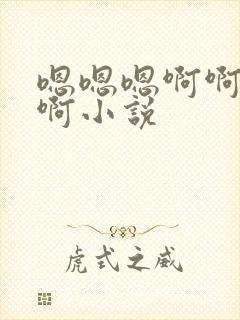 嗯嗯嗯啊啊
啊小说
虎式之威